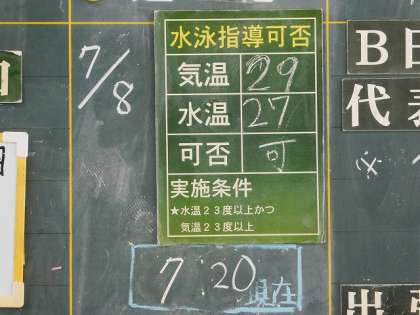 7/8
水泳指導可否
気温 29
水温 27
可否 可
実施条件
★水温23度以上かつ
気温23度以上
7:20現在
B日
代表
※